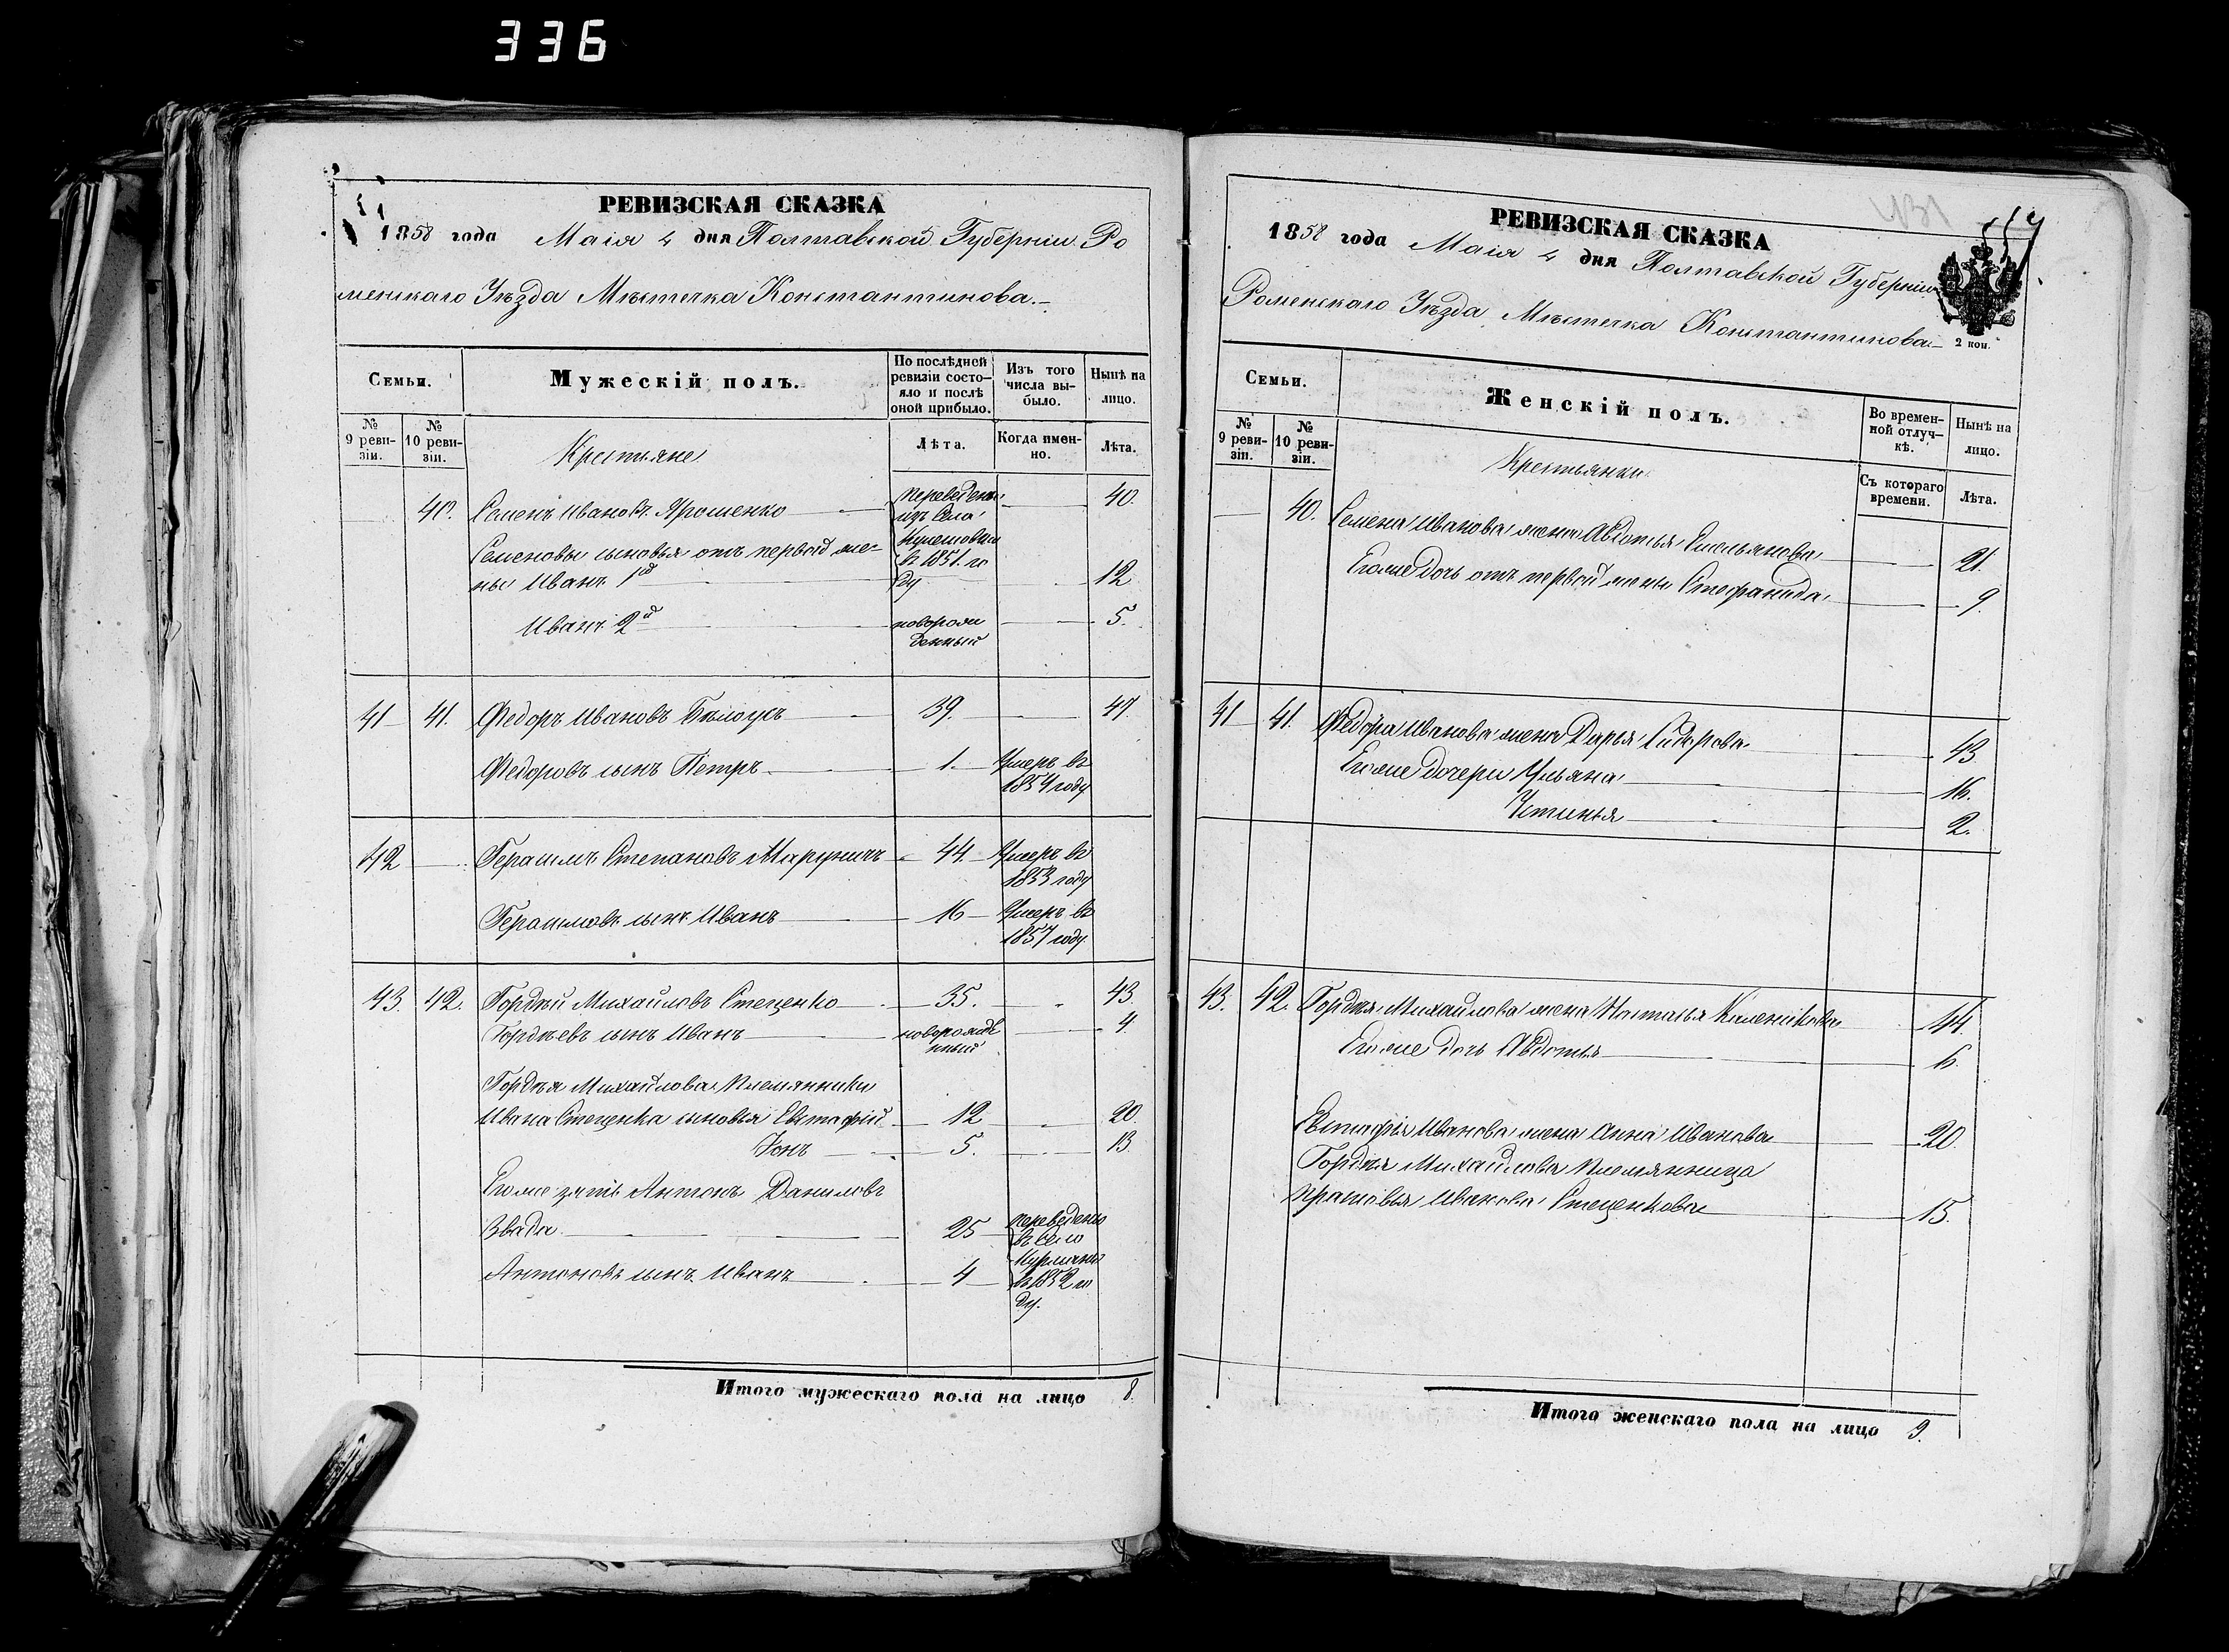 336
РЕВИЗСКАЯ СКАЗКА
1858 года Маія 4 дня Полтавской Губерніи Ро
менскаго Уѣзда Мѣстечка Константинова.
Семьи.
Мужескій полъ.
По послѣдней ревизіи состояло и послѣ оной прибыло.
Изъ того числа выбыло.
Нынѣ на лицо.
№ 9 ревизіи.
№ 10 ревизіи.
Крестьяне
Лѣта.
Когда именно.
Лѣта.
40. Семенъ Ивановъ Ярошенко переведены изъ села в 1851 го ду 40.
Семеновы сыновья отъ первой же-
ны Иванъ 1й 12
Иванъ 2й новорожденный 5.
41 41. Федоръ Ивановъ Бѣлоусъ 39. 47.
Федоровъ сынъ Петръ 1. Умеръ въ 1854 году
42 Герасимъ Степановъ Маруничъ 44 Умеръ въ 1853 году
Герасимовъ сынъ Иванъ 16 Умеръ въ 1857 году
43. 42. Гордѣй Михайловъ Стеценко 35. 43.
Гордѣевъ сынъ Иванъ новорожденный 4
Гордѣя Михайлова племянники
Ивана Стеценка сыновья Евстафій 12 20.
Іонъ 5. 13.
Его же зять Антонъ Даниловъ
Звада 25 переведены въ село в 1852 го ду.
Антоновъ сынъ Иванъ 4
Итого мужескаго пола на лицо 8.
431
РЕВИЗСКАЯ СКАЗКА
1858 года Маія 4 дня Полтавской Губерніи
Роменскаго Уѣзда Мѣстечка Константинова
2 коп.
Семьи.
Женскій полъ.
Во временной отлучкѣ.
Нынѣ на лицо.
№ 9 ревизіи.
№ 10 ревизіи.
Крестьянки
Съ котораго времени.
Лѣта.
40. Семена Иванова жена Авдотья Емельянова 21.
Его же дочь отъ первой жены Стефанида 9.
41 41. Федора Иванова жена Дарья Сидорова 43
Его же дочери Ульяна 16.
Устинья 2.
43. 42. Гордѣя Михайлова жена Настасья Каленикова 44.
Его же дочь Авдотья 6.
Евстафія Иванова жена Анна Иванова 20.
Гордѣя Михайлова племянница
Прасковья Иванова Стеценкова 15.
Итого женскаго пола на лицо 9.